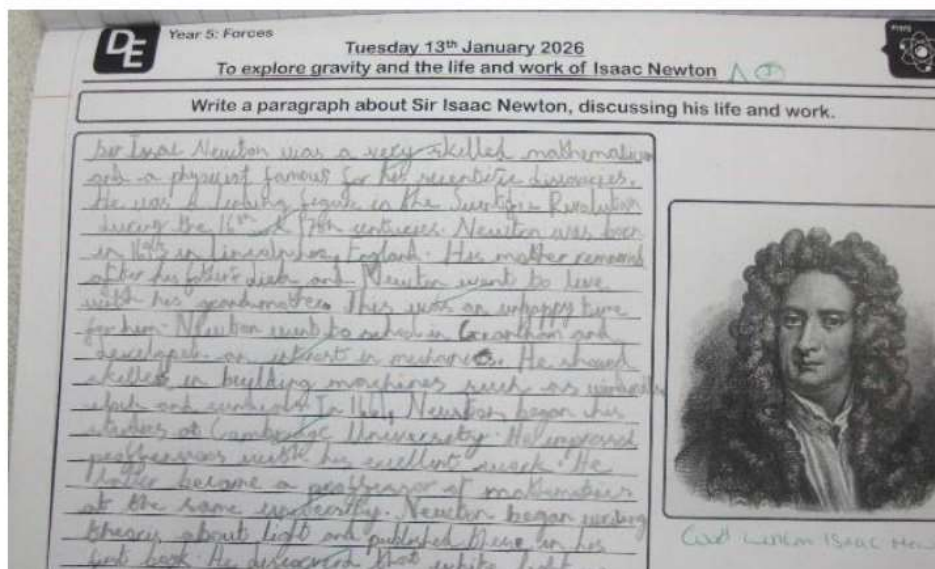 DE
Year 5: Forces
Tuesday 13th January 2026
To explore gravity and the life and work of Isaac Newton
Write a paragraph about Sir Isaac Newton, discussing his life and work.
Sir Isaac Newton was a very skilled mathematician
and a physicist famous for his discoveries.
He was a leading figure in the
during the 16th & 17th centuries. Newton was born
in in England. His mother
after his father's and Newton went to live
with his grandmother. This was an unhappy time
for him. Newton went to school in Grantham and
developed an intrest in mechanics. He showed
skilled in building machines such as
and Newton began his
studies at Cambridge University. He impressed
with his work. He
became a of mathematics
at the same Newton began writing
theory about light and published in his
first book. He discovered that white light
Isaac